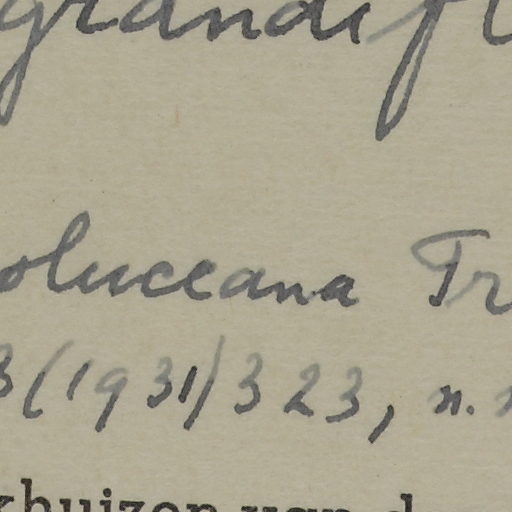 grandifl
oluceana Tr
3 (1931) 323, n. n
khuizen van d